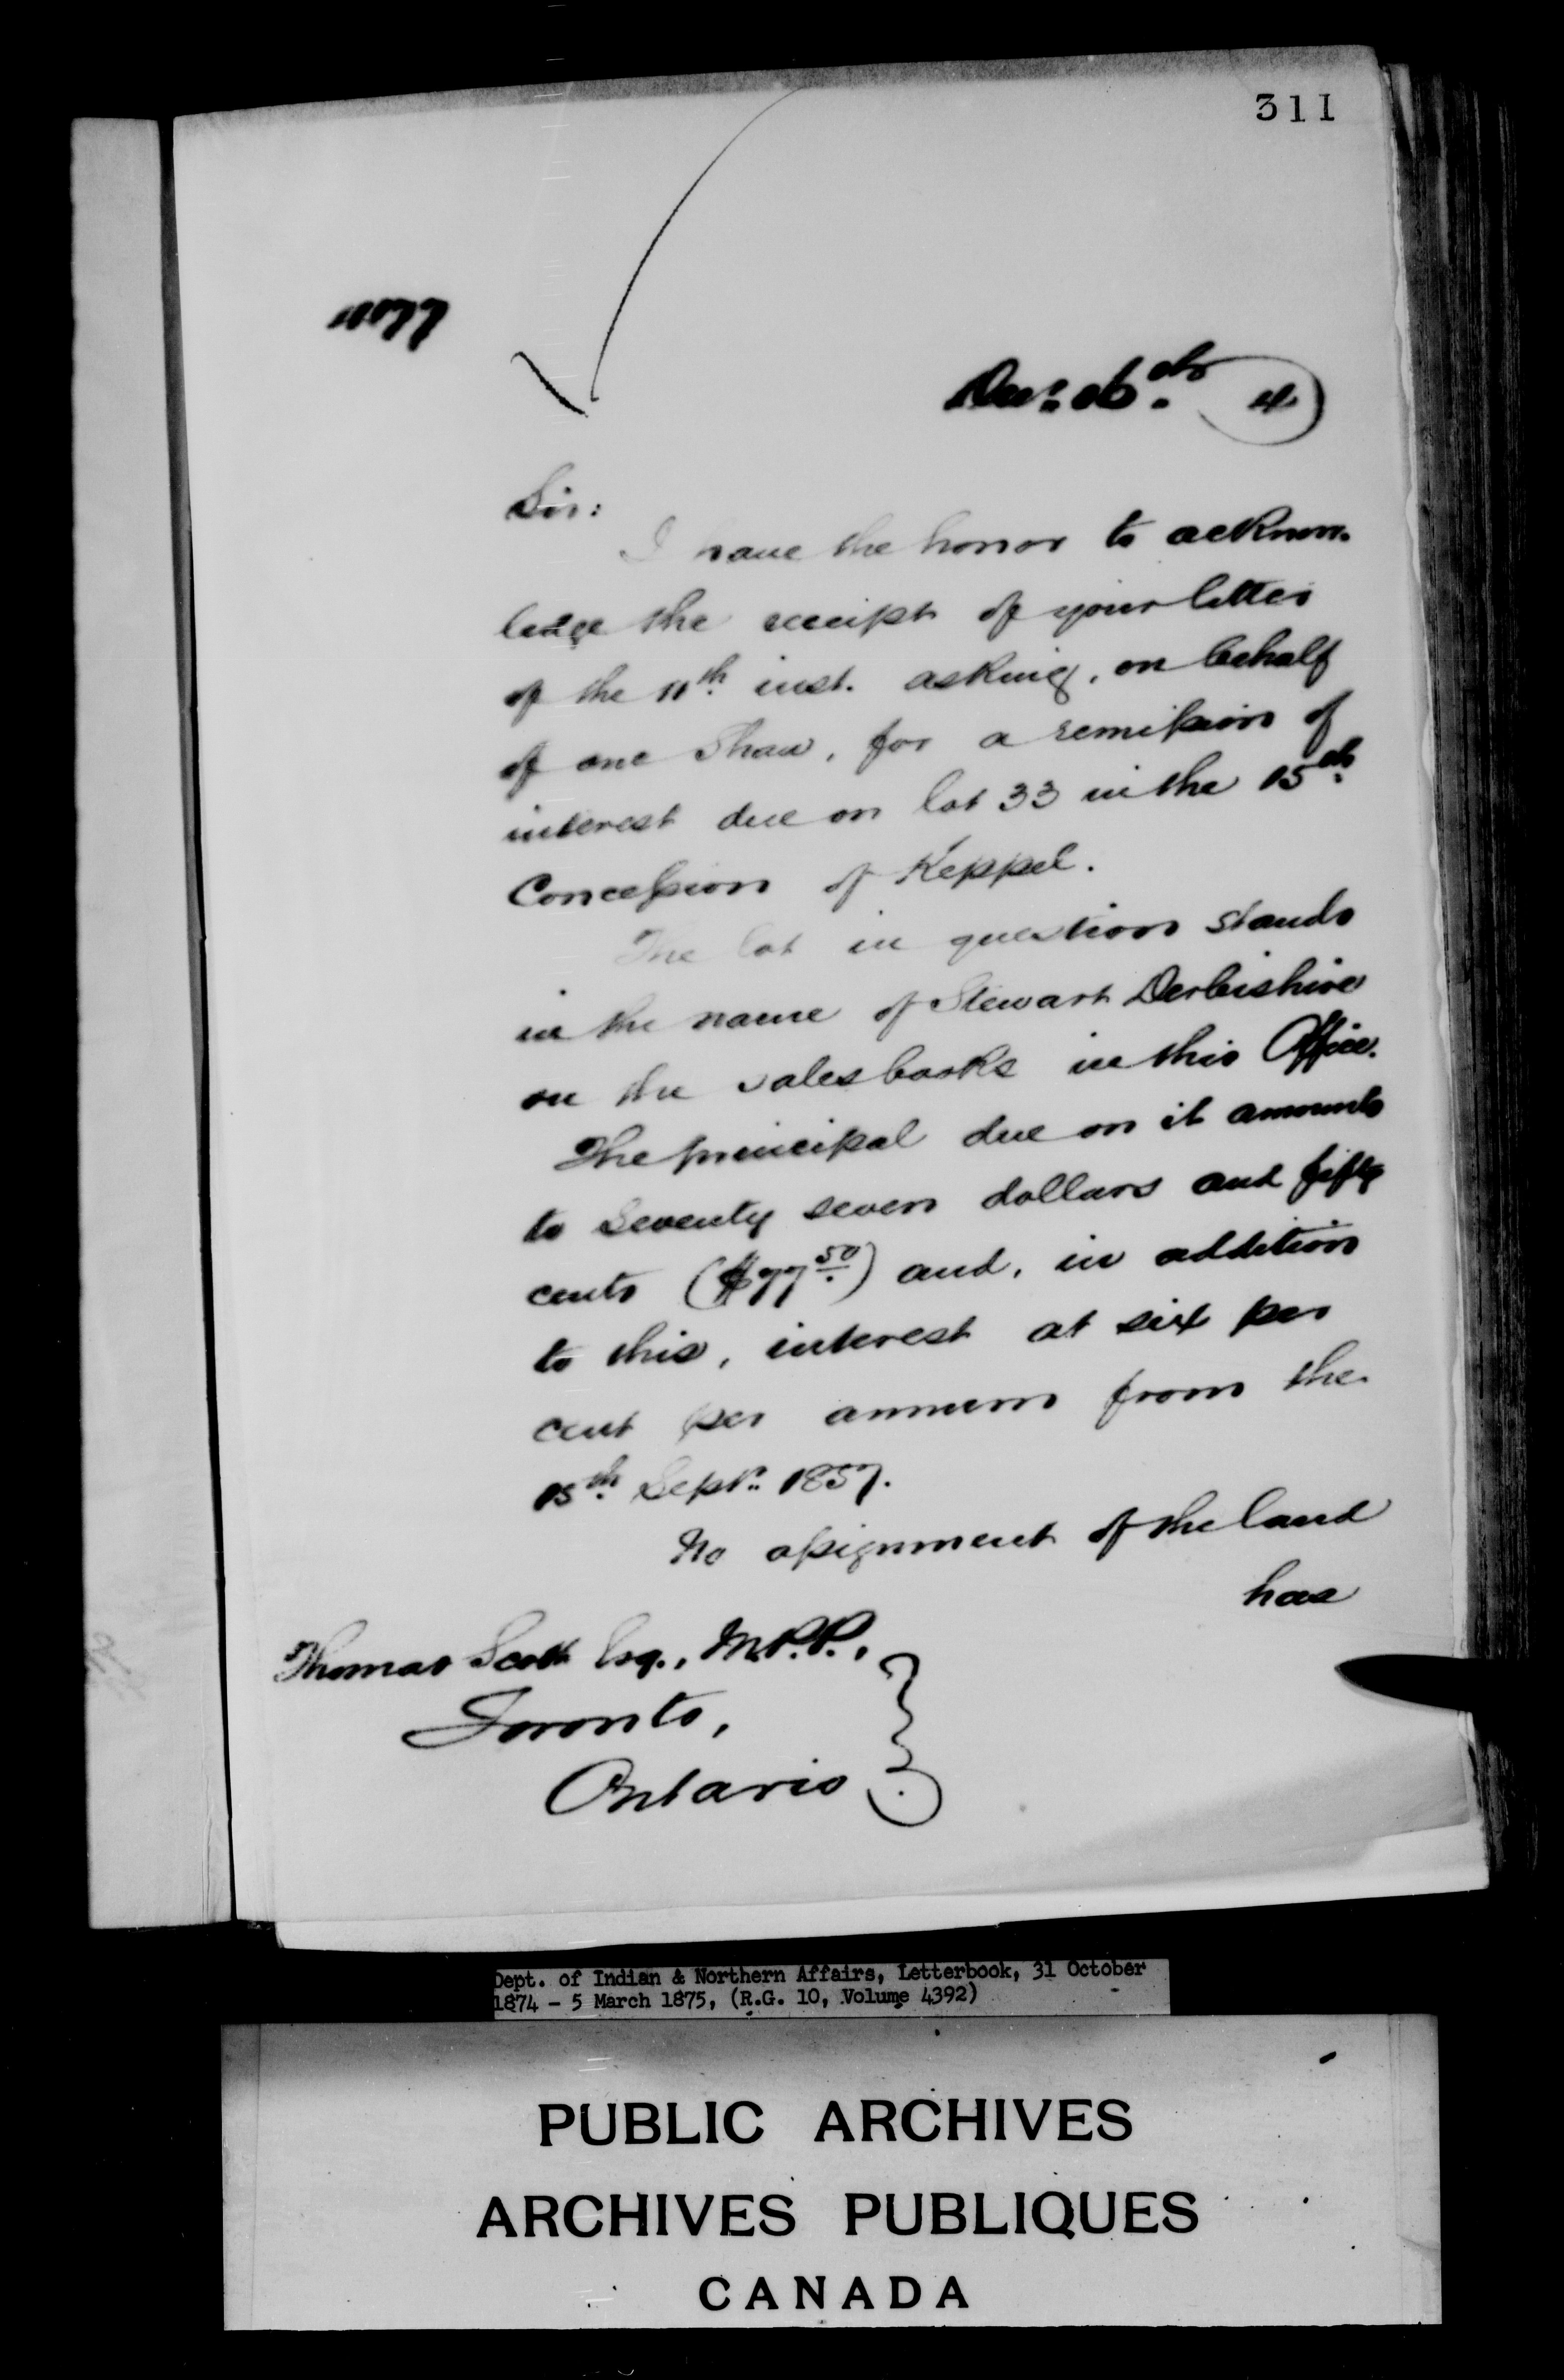 311
Dec: 16th. 4
Sir:
I have the honor to acknow-
ledge the receipt of your letter
of the 11th. inst. asking, on behalf
of one Shaw, for a remission of
interest due on lot 33 in the 15th.
Concession of Keppel.
The lot in question stands
in the name of Stewart Derbishire
on the sales books in this Office.
The principal due on it amounts
to seventy seven dollars and fifty
cents ($77.50) and, in addition
to this, interest at six per
cent per annum from the
15th. Sept. 1857.
No assignment of the land
has
Thomas Scott Esq., M.P.P.,
Toronto,
Ontario.
Dept. of Indian & Northern Affairs, Letterbook, 31 October
1874 - 5 March 1875, (R.G. 10, Volume 4392)
PUBLIC ARCHIVES
ARCHIVES PUBLIQUES
CANADA